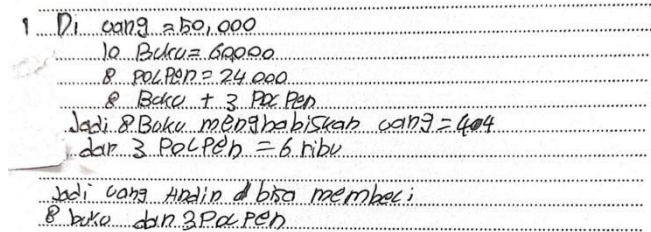 1 Di uang = 50,000
10 Buku = 60000
8 POLPen = 24.000
8 Boku + 3 Pol Pen
Jadi 8 Boku menghabiskan uang = 404
dan 3 PolPen = 6 ribu
Jadi uang Andin d bisa membeli
8 buku dan 3 Pol Pen